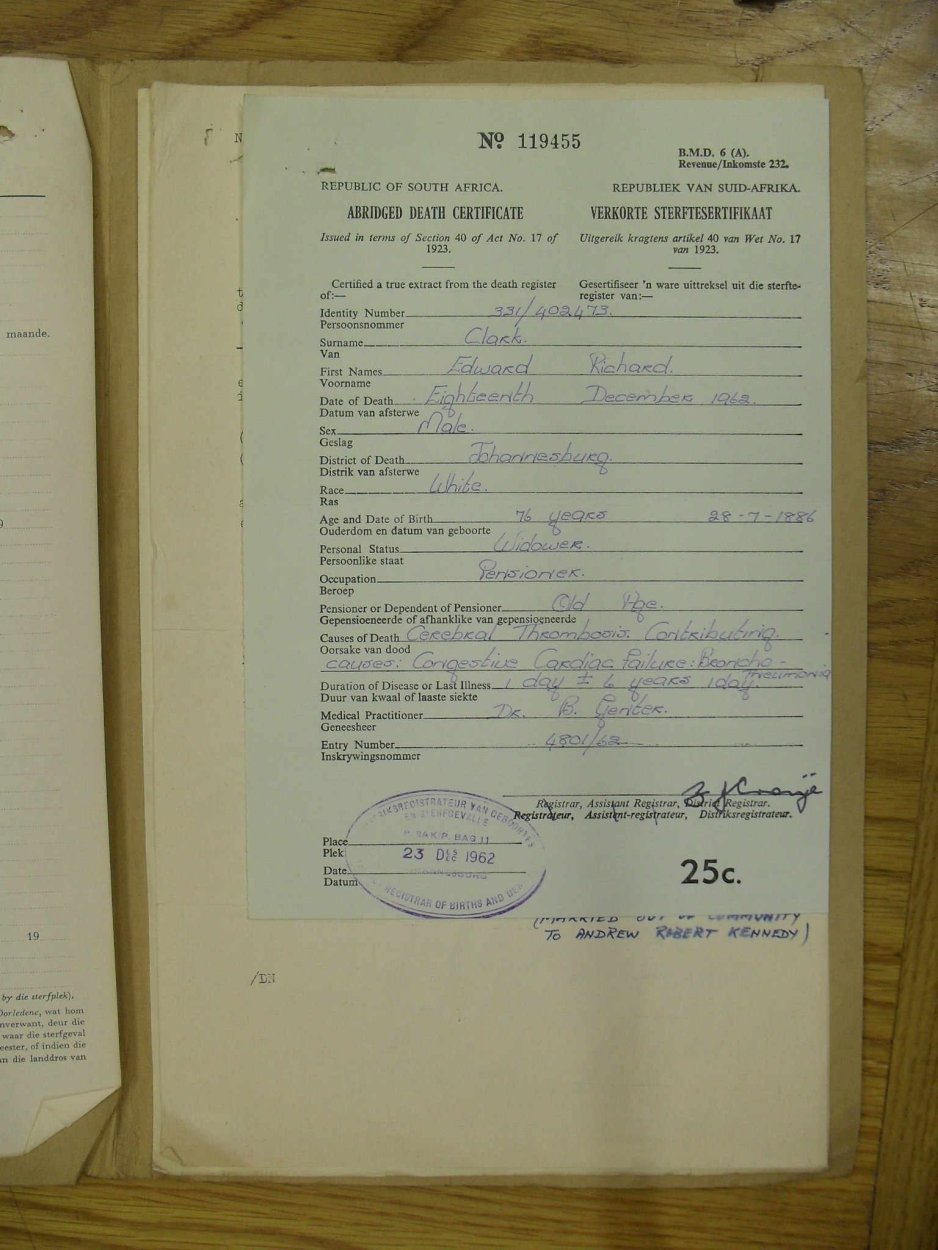 Nº 119455
B.M.D. 6 (A).
Revenue/Inkomste 232.
REPUBLIC OF SOUTH AFRICA. REPUBLIEK VAN SUID-AFRIKA.
ABRIDGED DEATH CERTIFICATE VERKORTE STERFTESERTIFIKAAT
Issued in terms of Section 40 of Act No. 17 of 1923. Uitgereik kragtens artikel 40 van Wet No. 17 van 1923.
Certified a true extract from the death register of:— Gesertifiseer 'n ware uittreksel uit die sterfte-register van:—
Identity Number 331/402473.
Persoonsnommer
Surname Clark.
Van
First Names Edward Richard.
Voorname
Date of Death Eighteenth December 1962.
Datum van afsterwe
Sex Male.
Geslag
District of Death Johannesburg.
Distrik van afsterwe
Race White.
Ras
Age and Date of Birth 76 years 28-7-1886
Ouderdom en datum van geboorte
Personal Status Widower.
Persoonlike staat
Occupation Pensioner.
Beroep
Pensioner or Dependent of Pensioner Old Age.
Gepensioeneerde of afhanklike van gepensioeneerde
Causes of Death Cerebral Thrombosis. Contributing.
Oorsake van dood
causes: Congestive Cardiac Failure: Broncho-
Pneumonia
Duration of Disease or Last Illness 1 day ± 6 years 1 day.
Duur van kwaal of laaste siekte
Medical Practitioner Dr. B. Genter.
Geneesheer
Entry Number 4801/62
Inskrywingsnommer
Registrar, Assistant Registrar, District Registrar.
Registrateur, Assistent-registrateur, Distriksregistrateur.
VAN GEBOORTES
EN STERFGEVALLE
P. SAK/P. BAG 11
23 DES DEC 1962
REGISTRAR OF BIRTHS AND
Place
Plek
Date
Datum
25c.
(MARRIED OUT OF COMMUNITY
TO ANDREW ROBERT KENNEDY)
/DN
maande.
19
by die sterfplek).
Oorledene, wat hom
nverwant, deur die
waar die sterfgeval
eester, of indien die
n die landdros van